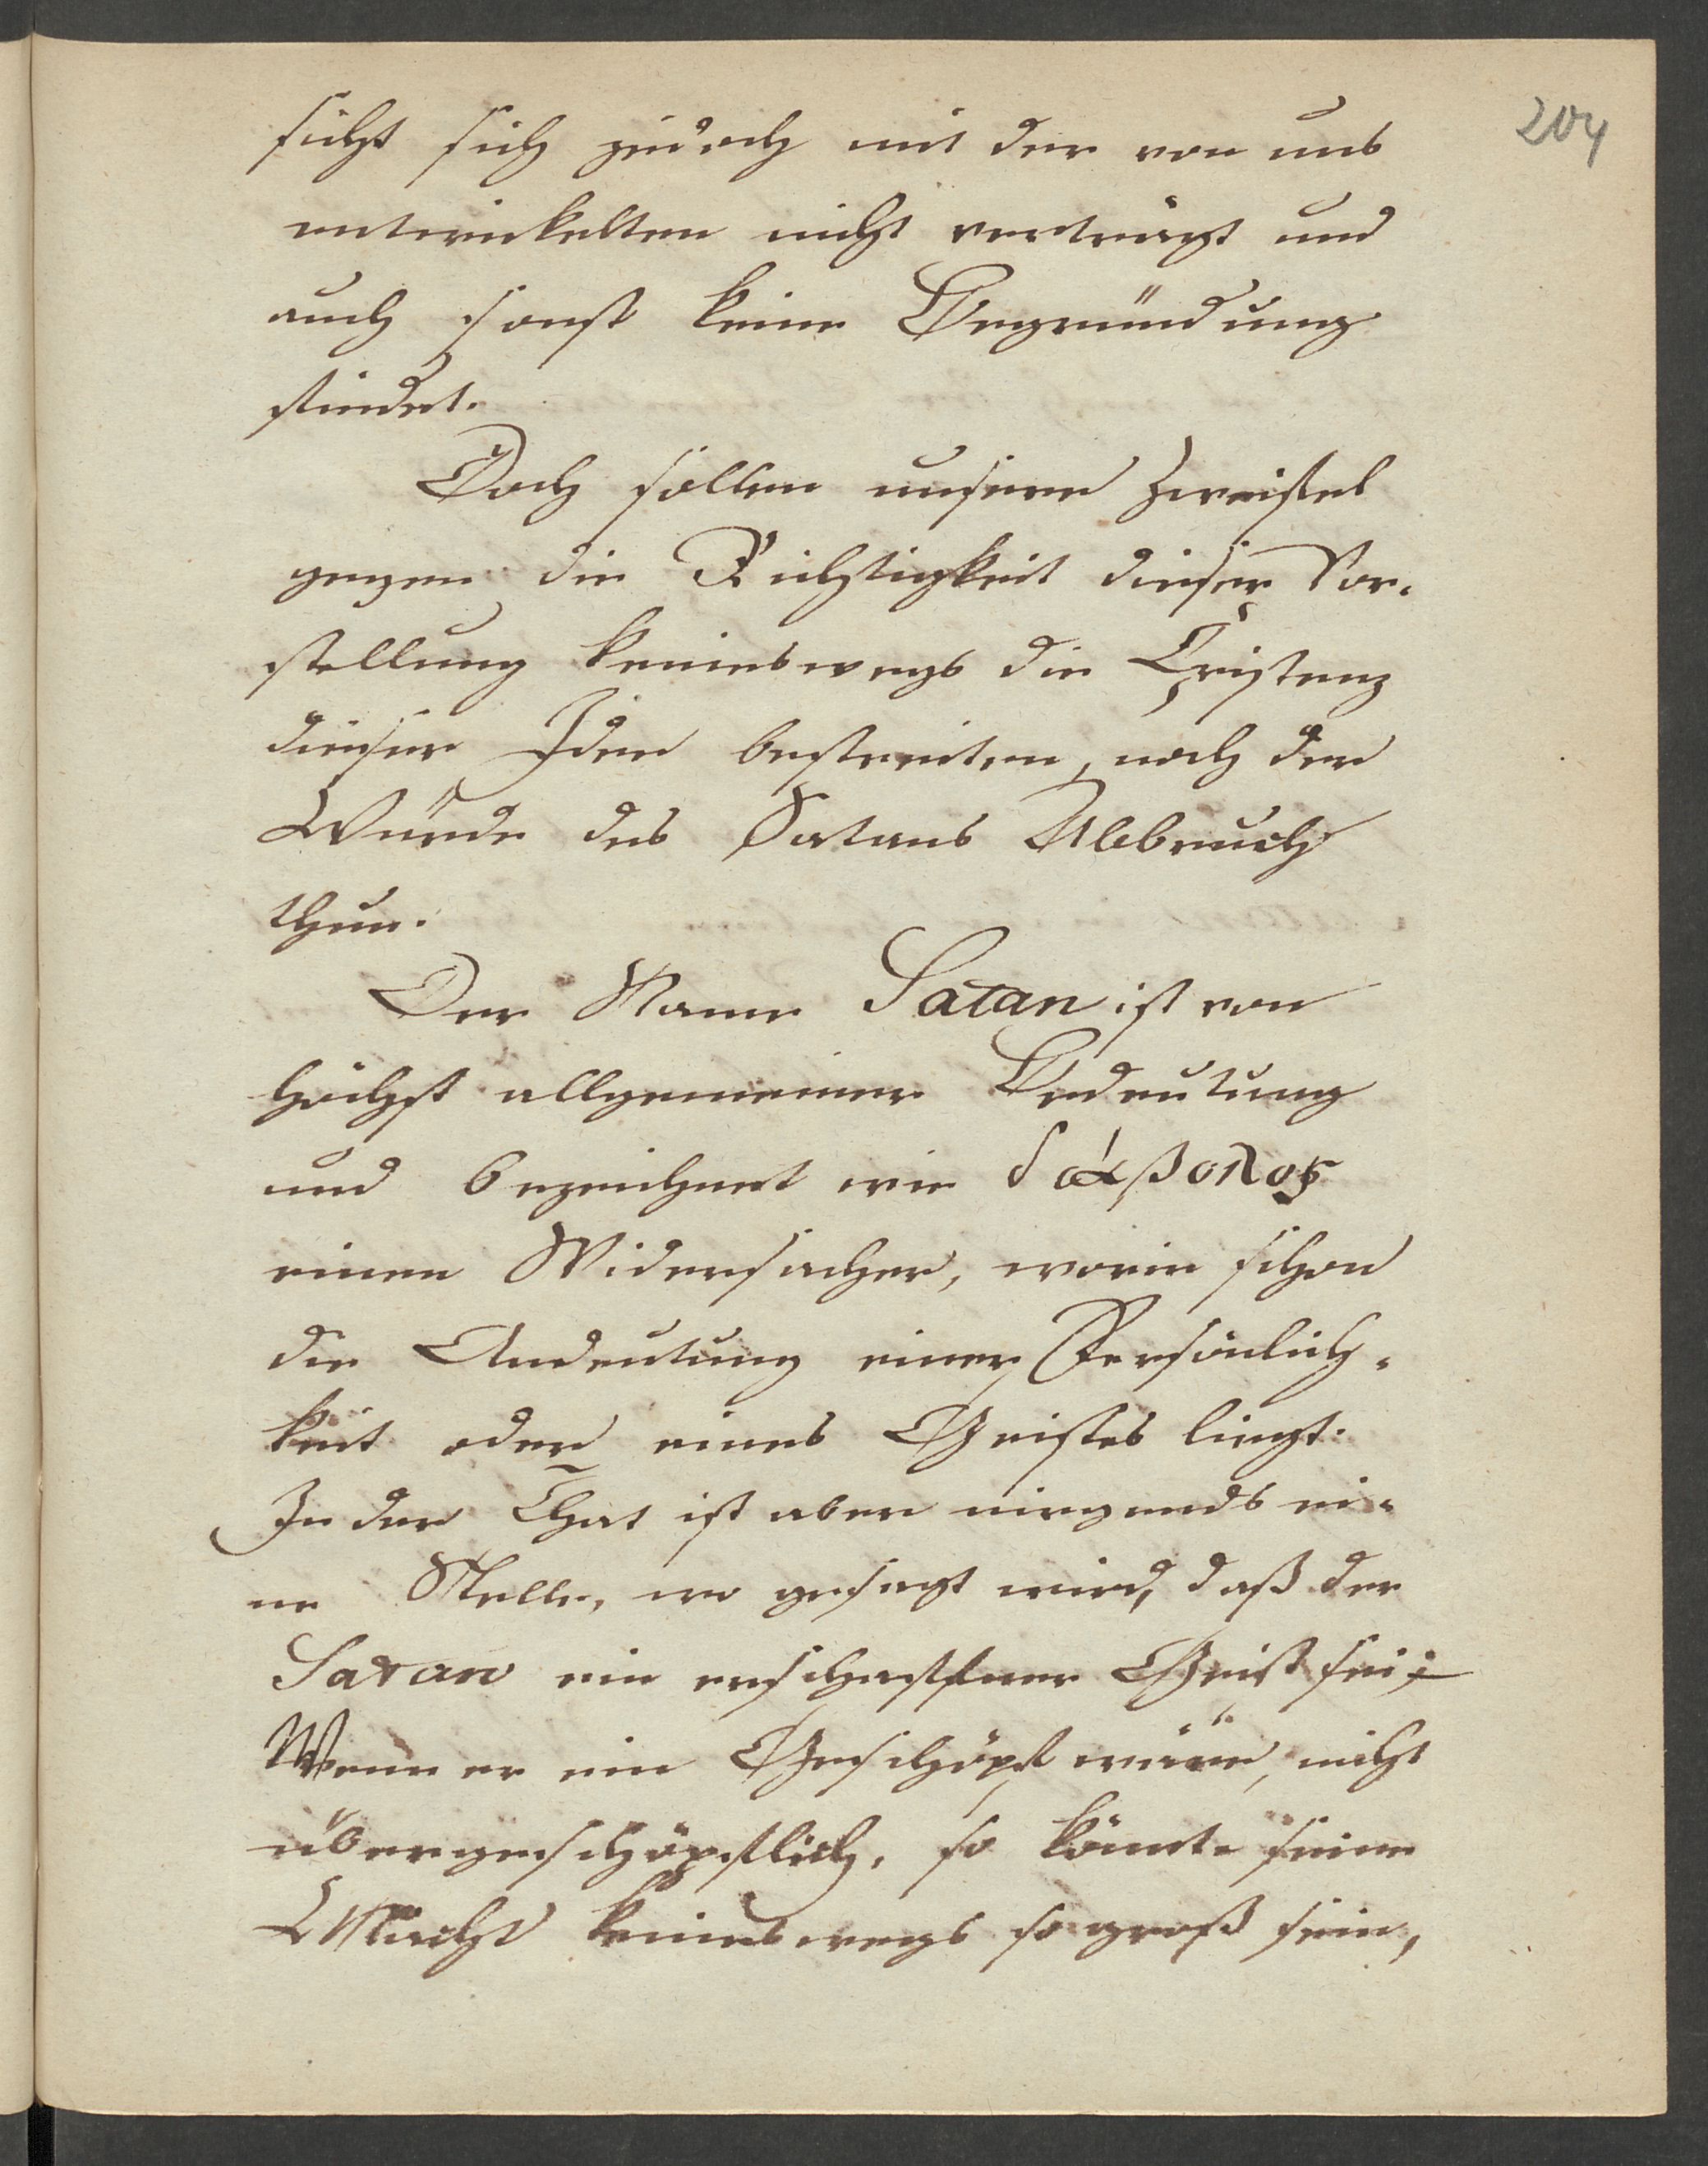 204
sicht sich jedoch mit der von uns
entwickelten nicht verträgt und
auch sonst keine Begründung
findet.
Doch sollen unsere Zweifel
gegen die Richtigkeit dieser Vor-
stellung keineswegs die Existenz
dieser Idee bestreiten, noch der
Würde des Satans Abbruch
thun.
Der Name Satan ist von
höchst allgemeiner Bedeutung
und bezeichnet wie δάβολος
einen Widersacher, worin schon
die Andeutung einer Persönlich-
keit oder eines Geistes liegt.
In der That ist aber nirgends ei-
ne Stelle, wo gesagt wird, daß der
Satan ein erschaffener Geist sei;
Wenn er ein Geschöpf wäre, nicht
übergeschöpflich, so könnte seine
Macht keineswegs so groß sein,